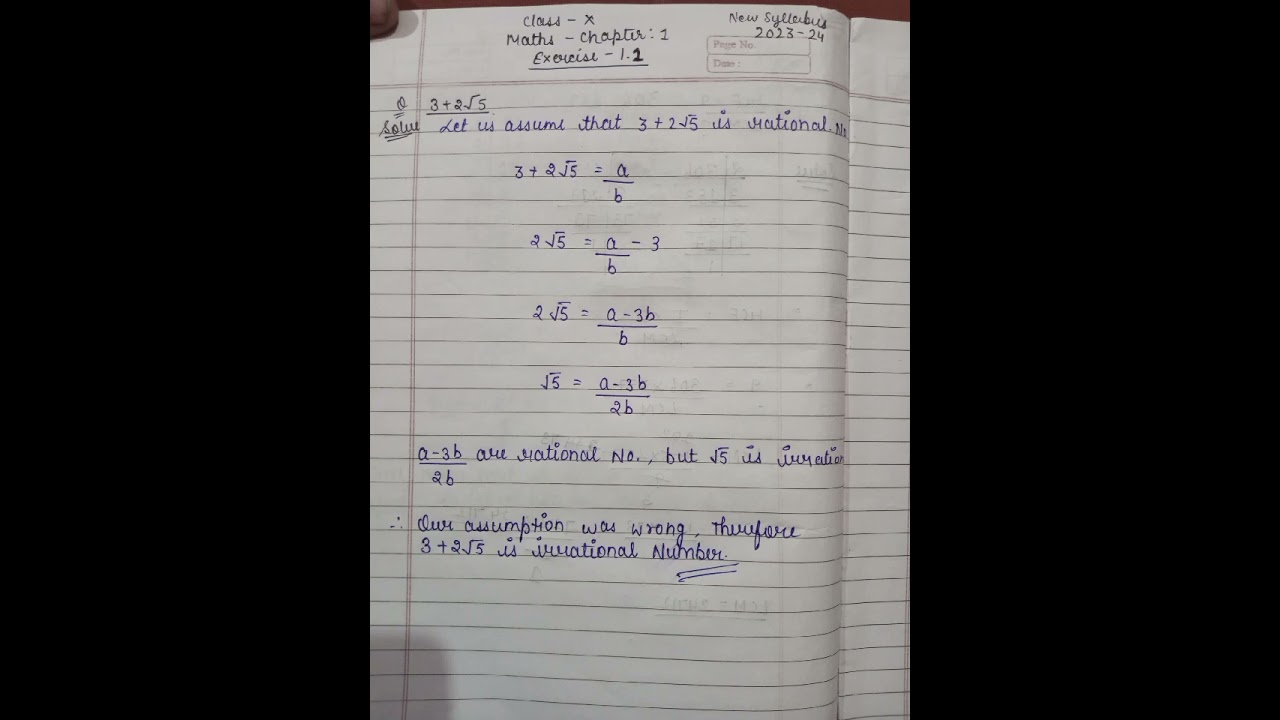 Class - X
Maths - Chapter: 1
Exercise - 1.2
New Syllabus
2023-24
Page No.
Date :
Q 3+2√5
Solve Let us assume that 3+2√5 is rational. No
3 + 2√5 = a/b
2√5 = a/b - 3
2√5 = a-3b/b
√5 = a-3b/2b
a-3b/2b are rational No., but √5 is irration
∴ Our assumption was wrong, Therefore
3+2√5 is irrational Number.